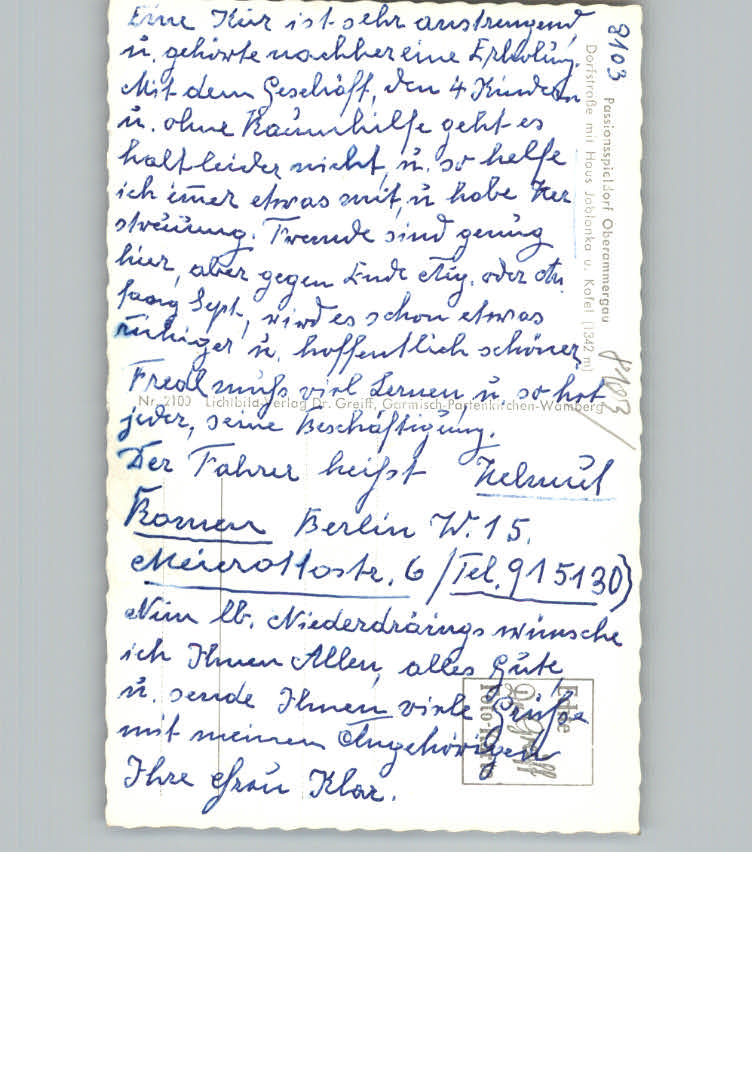 Eine Kur ist sehr anstrengend,
u. gehörte nachher eine Erholung.
Mit dem Geschäft, den 4 Kindern
u. ohne Raumhilfe geht es
halt leider nicht, u. so helfe
ich imer etwas mit, u habe Zer
streuung. Fremde sind genug
hier, aber gegen Ende Aug. oder An
fang Sept, wird es schon etwas
ruhiger u. hoffentlich schöner.
Fredl muß viel Lernen u. so hat
jeder, seine Beschäftigung.
Der Fahrer heißt Helmut
Romen Berlin W. 15.
Meierottostr. 6 /Tel. 915130)
Nun lb. Niederdräings wünsche
ich Ihnen Allen, alles Gute,
u. sende Ihnen viele Grüße
mit meinen Angehörigen
Ihre Frau Klar.
8103
Passionsspieldorf Oberammergau
Dorfstraße mit Haus Jablonka u. Kofel (1342 m)
8103/
Nr. 2103 Lichtbild-Verlag Dr. Greiff, Garmisch-Partenkirchen-Wamberg
Echte
Dr. Greiff
Foto-Karte